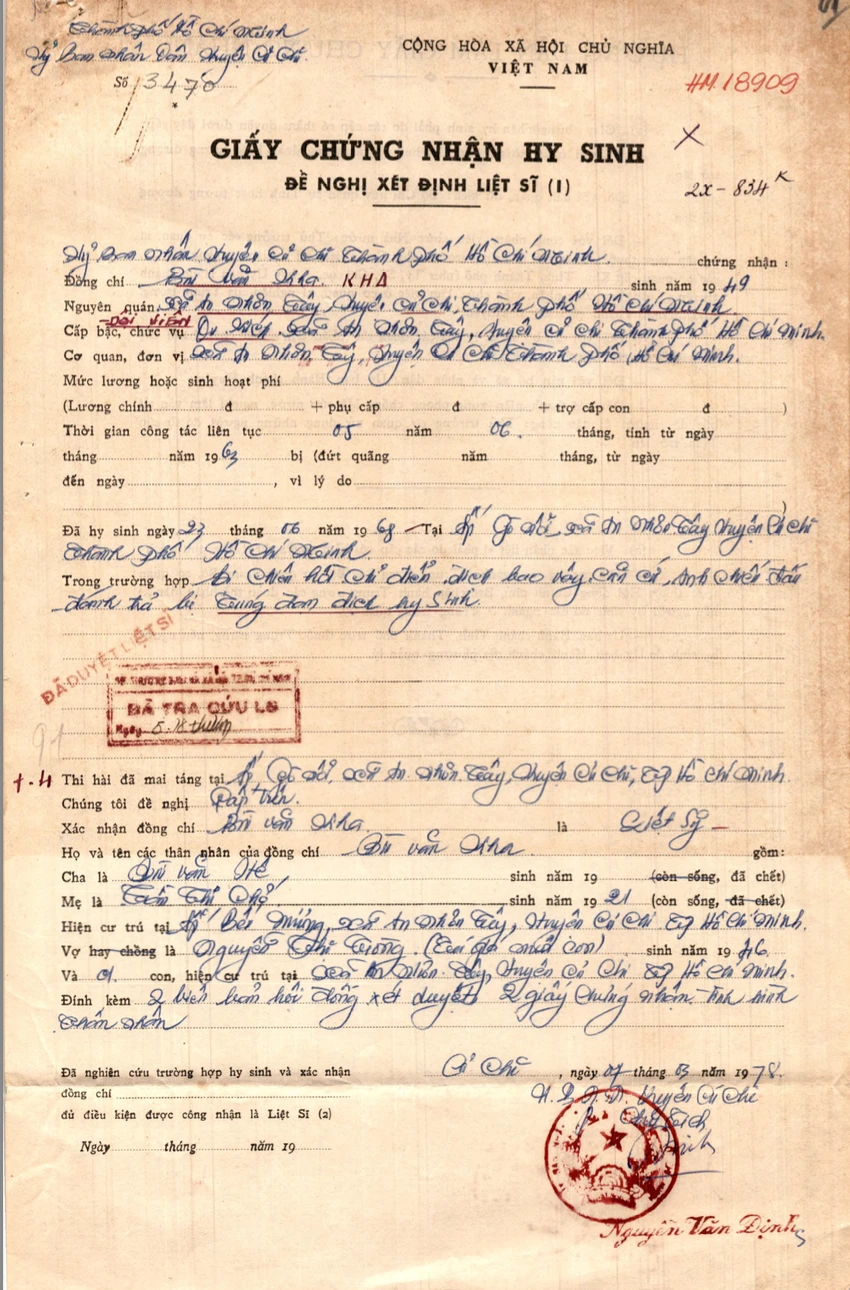 Thành Phố Hồ Chí Minh
Uỷ Ban Nhân Dân Huyện Củ Chi
CỘNG HÒA XÃ HỘI CHỦ NGHĨA
VIỆT NAM
Số 3470
HM 18909
GIẤY CHỨNG NHẬN HY SINH
X
ĐỀ NGHỊ XÉT ĐỊNH LIỆT SĨ (1)
2X - 834 K
Uỷ Ban Nhân Huyện Củ Chi Thành Phố Hồ Chí Minh. chứng nhận :
Đồng chí Bùi Văn Kha. KHA sinh năm 1949
Nguyên quán Xã An Nhơn Tây, Huyện Củ Chi, Thành Phố Hồ Chí Minh.
- Đội viên
Cấp bậc, chức vụ Du Kích Xã An Nhơn Tây, Huyện Củ Chi Thành Phố Hồ Chí Minh.
Cơ quan, đơn vị Xã An Nhơn Tây, Huyện Củ Chi Thành Phố Hồ Chí Minh.
Mức lương hoặc sinh hoạt phí
(Lương chính đ + phụ cấp đ + trợ cấp con đ )
Thời gian công tác liên tục 05 năm 06 tháng, tính từ ngày
tháng năm 1963 bị (đứt quãng năm tháng, từ ngày
đến ngày , vì lý do
)
Đã hy sinh ngày 23 tháng 06 năm 1968 - Tại Ấp Gò Nổi, Xã An Nhơn Tây Huyện Củ Chi
Thành Phố Hồ Chí Minh.
Trong trường hợp bị chiêu hồi chỉ điểm, địch bao vây căn cứ, Anh chiến đấu
đánh trả bị trúng đạn địch hy sinh.
ĐÃ DUYỆT LIỆT SĨ
ĐÃ TRA CỨU LS
Ngày
94
+.4 Thi hài đã mai táng tại Ấp Gò Nổi, Xã An Nhơn Tây, Huyện Củ Chi, TP Hồ Chí Minh.
Chúng tôi đề nghị Cấp trên.
Xác nhận đồng chí Bùi Văn Kha là Liệt Sỹ -
Họ và tên các thân nhân của đồng chí Bùi Văn Kha. gồm:
Cha là Bùi Văn Hê sinh năm 19 (còn sống, đã chết)
Mẹ là Trần Thị sinh năm 1921 (còn sống, đã chết)
Hiện cư trú tại Ấp Bến Mương, Xã An Nhơn Tây, Huyện Củ Chi TP Hồ Chí Minh.
Vợ hay chồng là Nguyễn Thị (Tái giá nuôi con) sinh năm 1946.
Và 01 con, hiện cư trú tại Xã An Nhơn Tây, Huyện Củ Chi TP Hồ Chí Minh.
Đính kèm 2 biên bản hội đồng xét duyệt 2 giấy chứng nhận tình hình
thân nhân
Đã nghiên cứu trường hợp hy sinh và xác nhận
đồng chí
đủ điều kiện được công nhận là Liệt Sĩ (2)
Ngày tháng năm 19
Củ Chi , ngày 07 tháng 03 năm 1978.
U.B.N.D. Huyện Củ Chi
Chủ Tịch
Nguyễn Văn Định